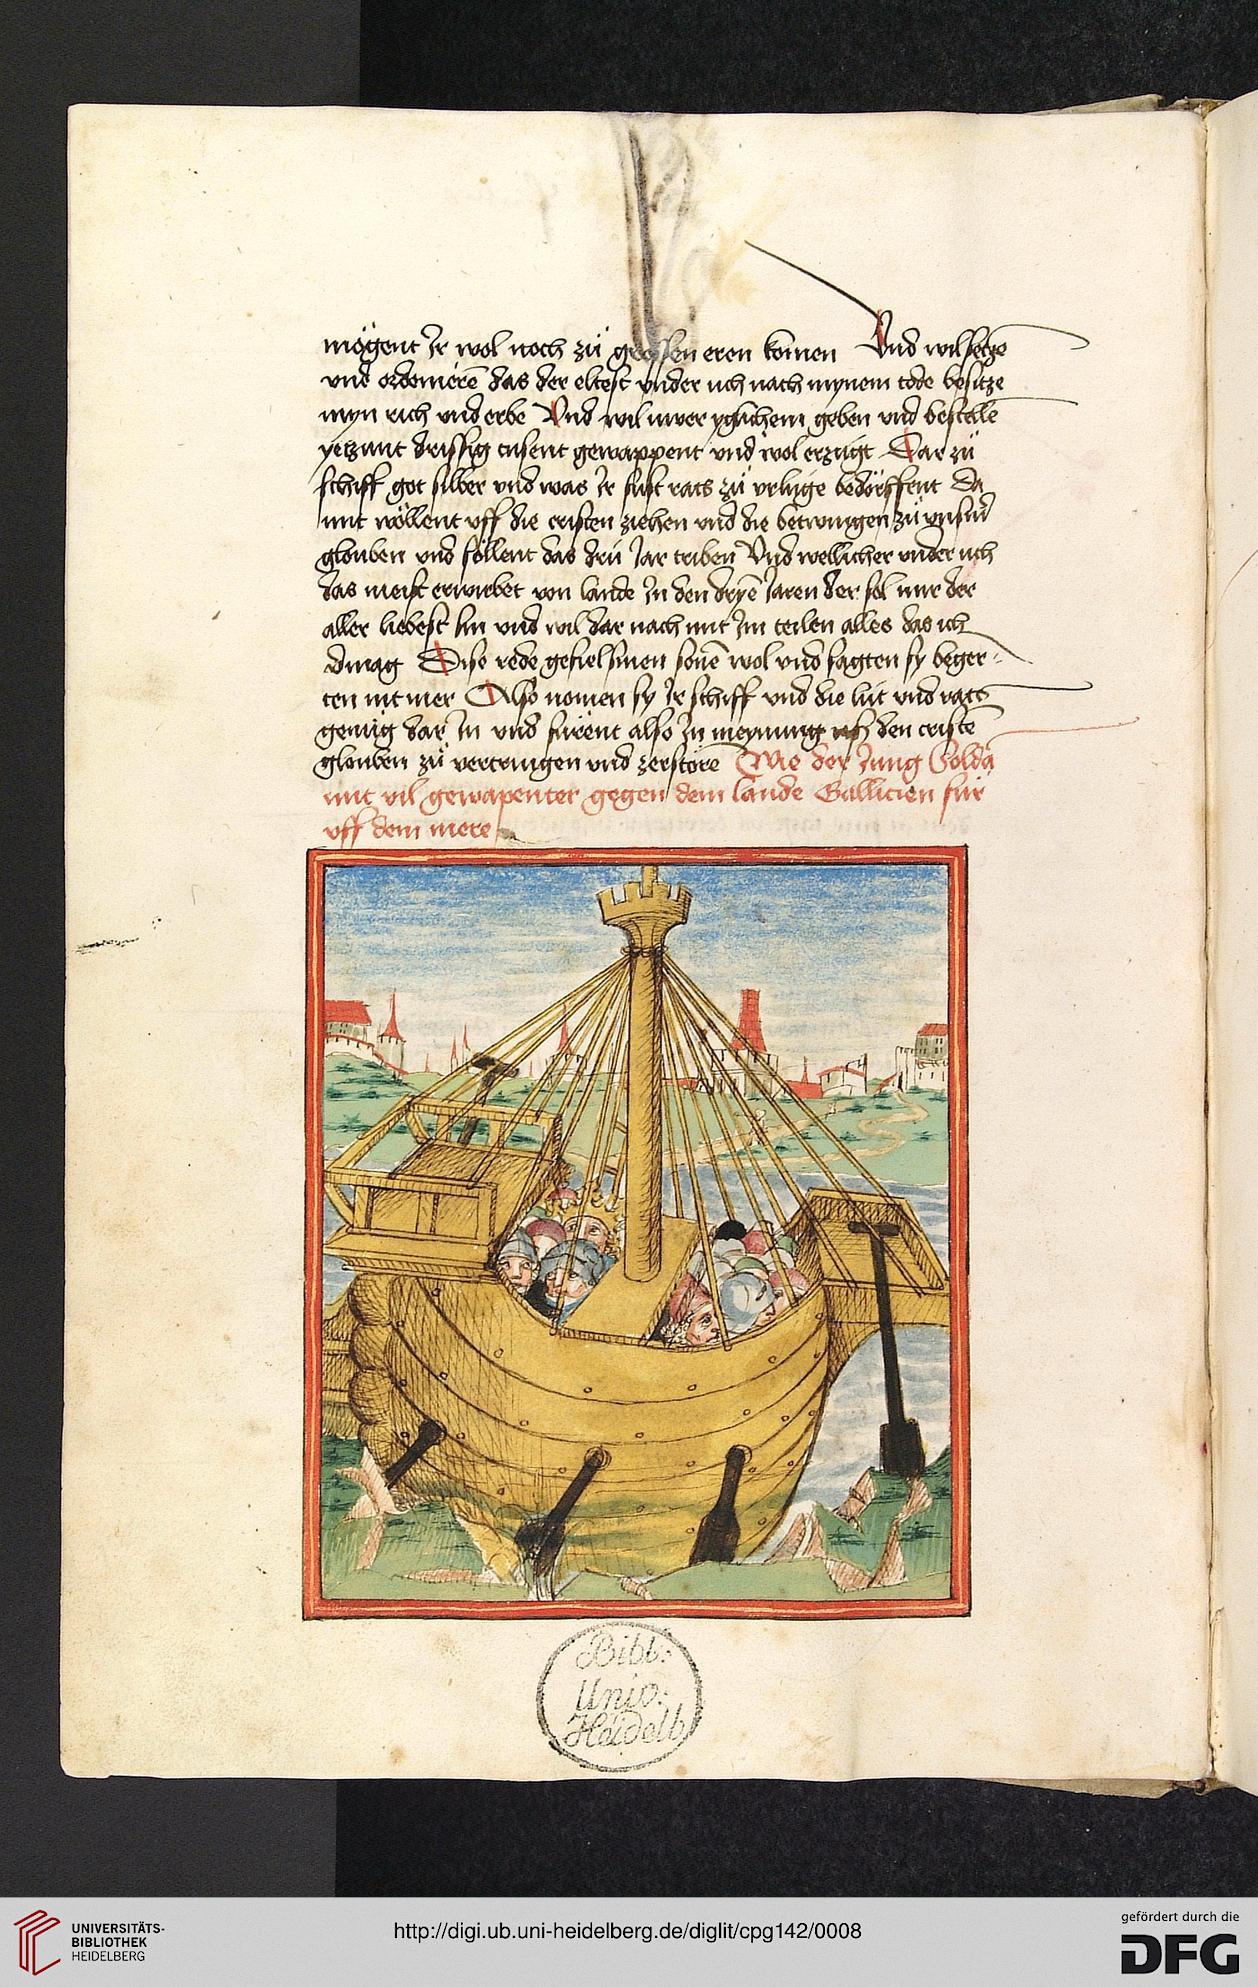 mögent Jr wol noch zü grossen eren komen Vnd wil setze
vnd ordonieren̄ das der eltest vnder uch nach mynem tode besitze
myn rich vnd erbe Vnd wil uwer yglichem geben vnd bestelle
yetzunt drissig tusent gewappent vnd wol erzügt Dar zü
schiff got silber vnd was Jr sust rats zü vrlüge bedörffent Da
mit wöllent vff die cristen ziehen vnd die betwingen zü vnserm
glouben vnd söllent das drü Jar triben Vnd wellicher vnder uch
das meist erwirbet von lande Jn den dryē Jaren der sol mir der
aller liebest sin vnd wil dar nach mit Jm teilen alles das ich
v̈mag Dise rede gefiel sinen sönē wol vnd sagten sy beger-
ten nit mer Also nomen sy Jr schiff vnd die lüt vnd rats
genüg dar Jn vnd fürent also Jn meynung den cristē
glouben zü vertringen vnd zerstörē Wie der Jung Solda
mit vil gewapenter gegen dem lande Gallicien für
vff dem mere
Bibl:
Univ:
Heidelb
UNIVERSITÄTS-
BIBLIOTHEK
HEIDELBERG
http://digi.ub.uni-heidelberg.de/diglit/cpg142/0008
gefördert durch die
DFG